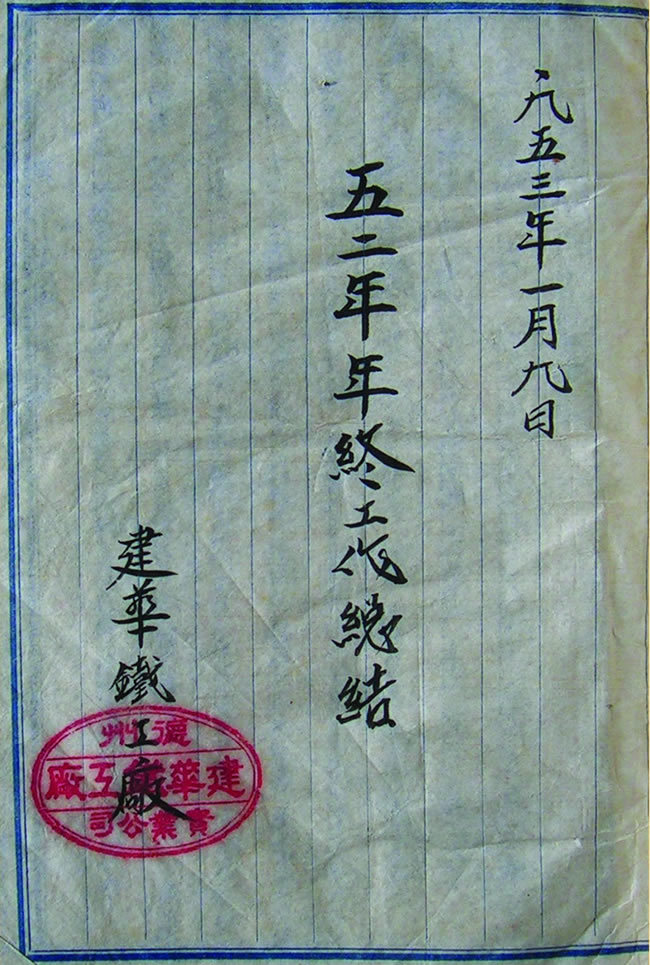 一九五三年一月九日
五二年年終工作總結
建華鐵工廠
德州
建華鐵工廠
業公司